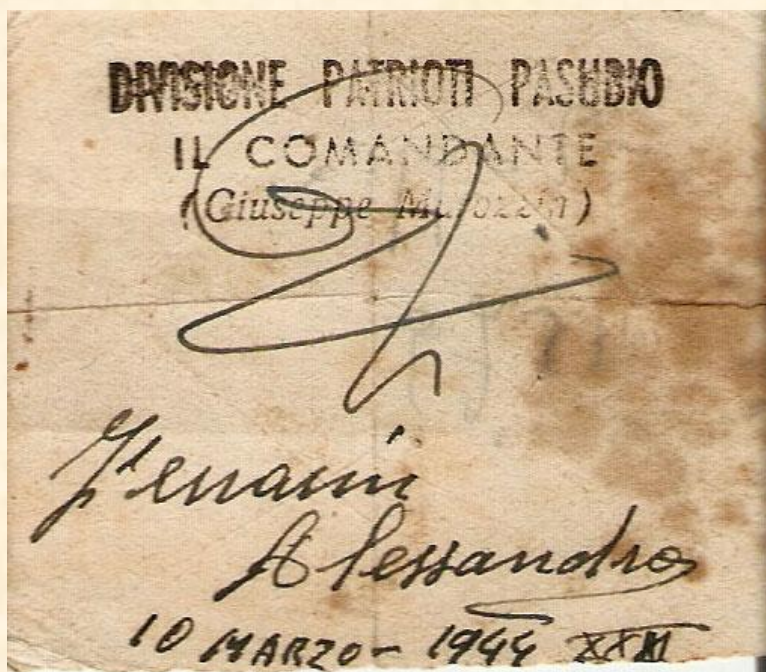 DIVISIONE PATRIOTI PASUBIO
IL COMANDANTE
(Giuseppe Marozzin)
Alessandro
10 MARZO - 1944 XXII